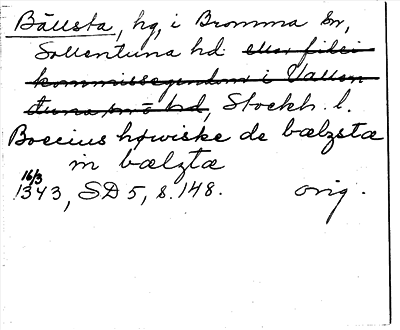 Bällsta, hg, i Bromma sn,
Sollentuna hd eller fidei
kommissegendom i Vallen
tuna sn o hd, Stockh. l.
Boecius høwiske de bælzstæ
in bælztæ
16/3
1343, SD 5, s. 148. orig.